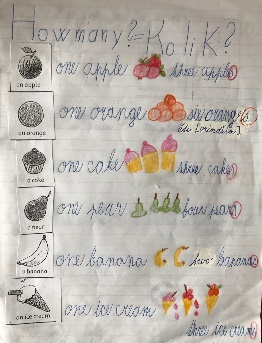 How many? = Kolik?
an apple
one apple three apples
an orange
one orange six oranges
a cake
one cake three cakes
a pear
one pear four pears
a banana
one banana two bananas
an ice cream
one ice cream
three ice creams